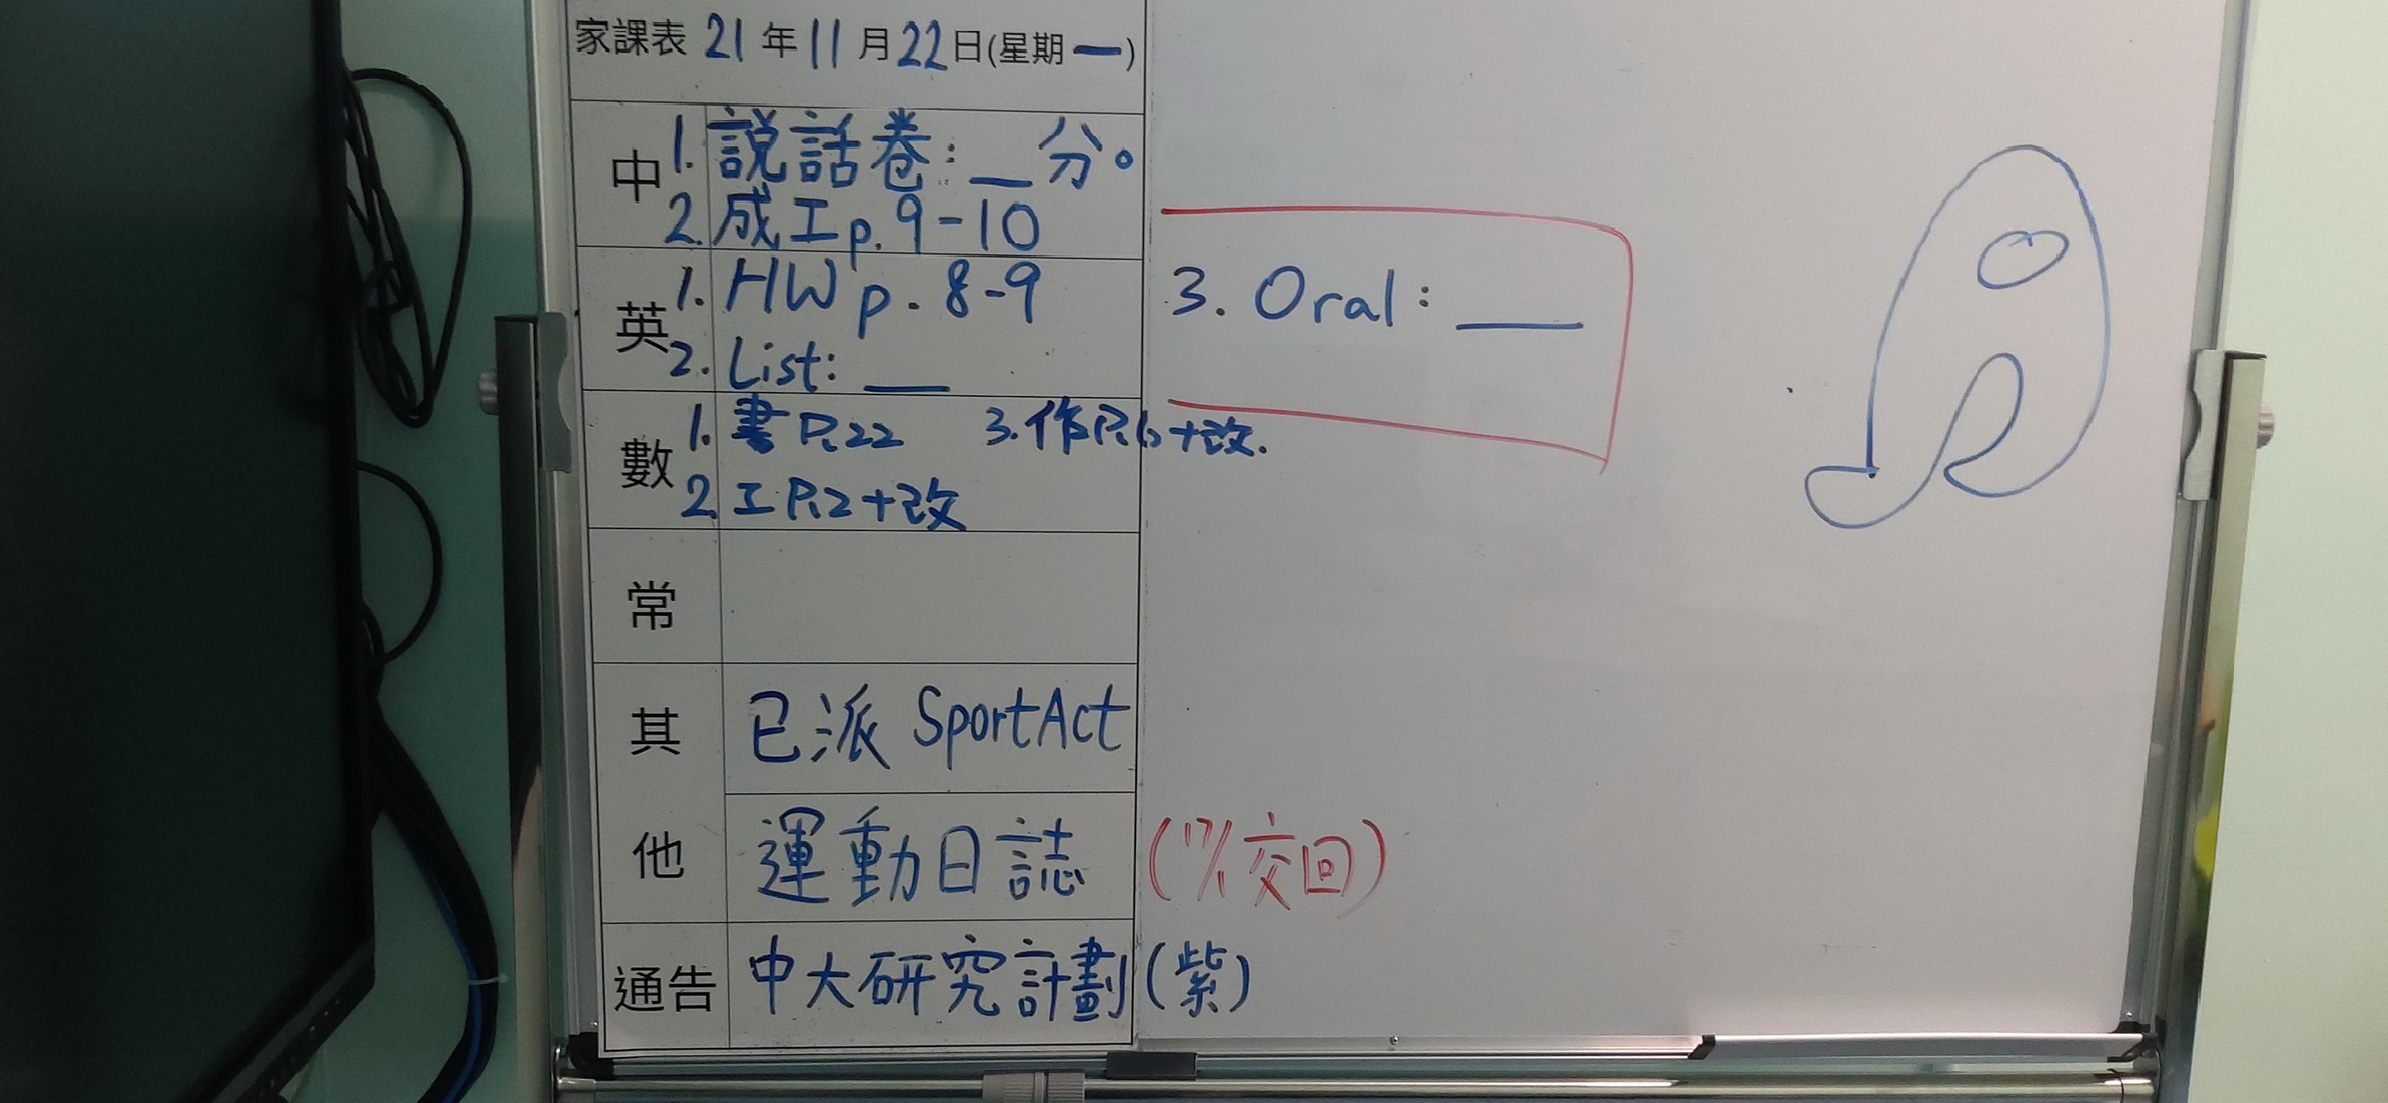 家課表 21 年 11 月 22 日(星期一)
中 1. 說話卷: __ 分。
2. 成工 p. 9-10
英 1. HW p. 8-9
2. List: ___
3. Oral: ___
數 1. 書 P.22 3. 作 +改.
2. 工 P.2+改
常
其他 已派 SportAct
運動日誌 (17/1交回)
通告 中大研究計劃(紫)